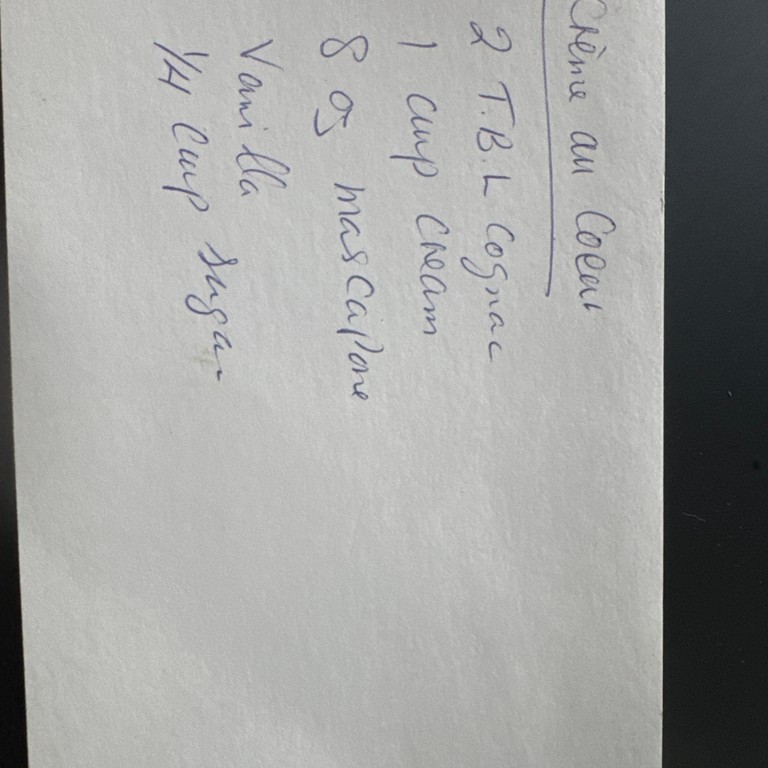 Crème au Coeur
2 T.B.L Cognac
1 cup Cream
8 oz mascapone
Vanilla
1/4 Cup sugar